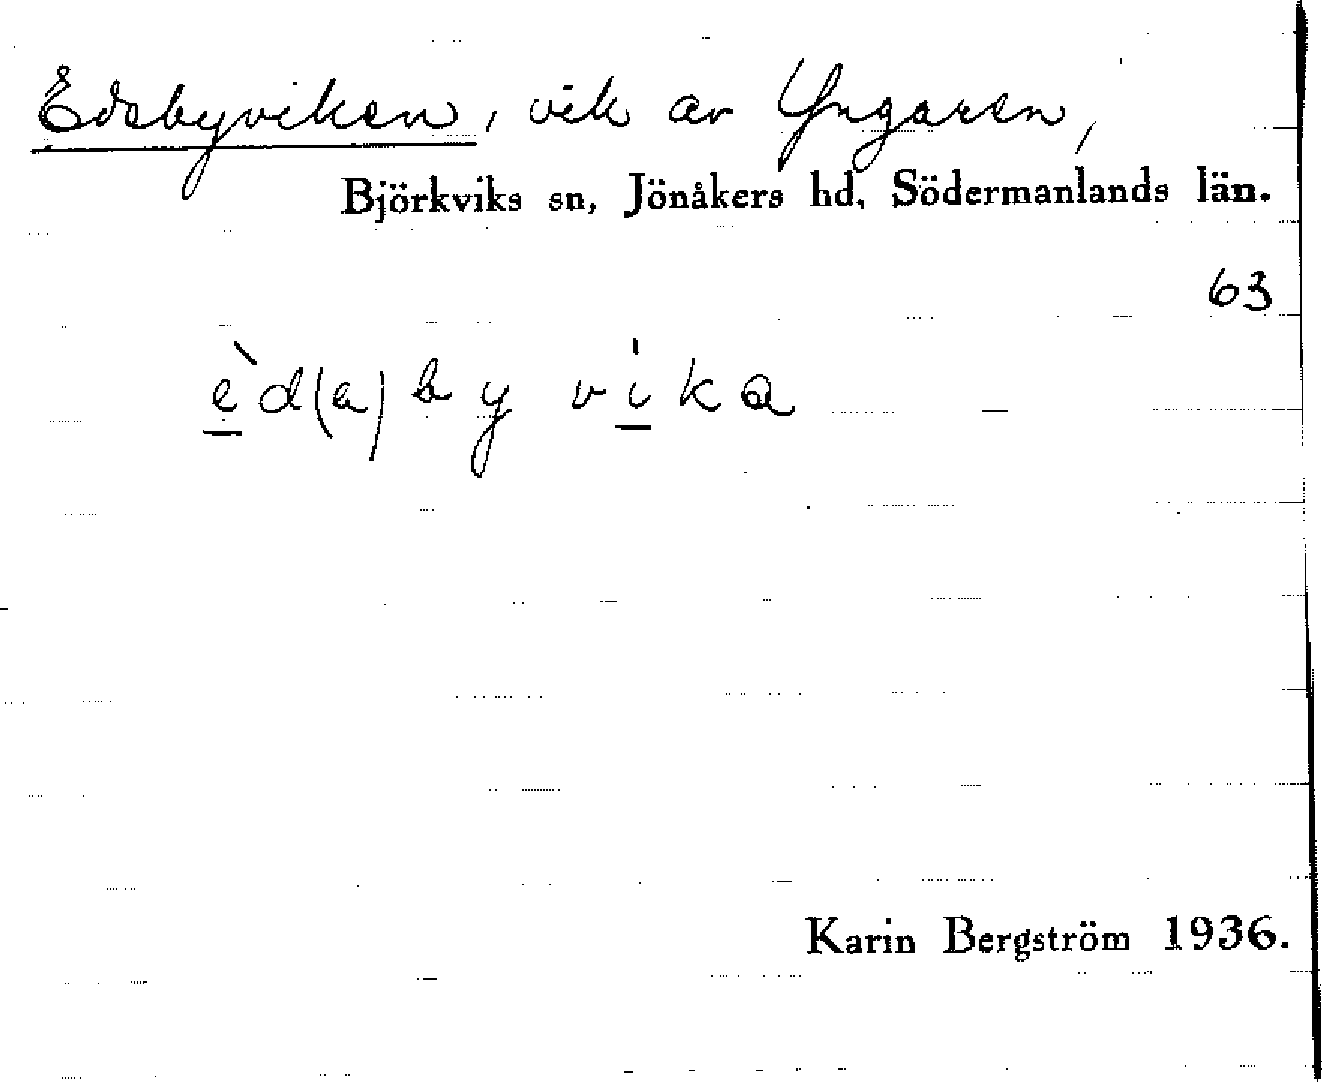 Edebyviken, vik av Yngaren,
Björkviks sn, Jönåkers hd, Södermanlands län.
63
èd(a)by vika
Karin Bergström 1936.